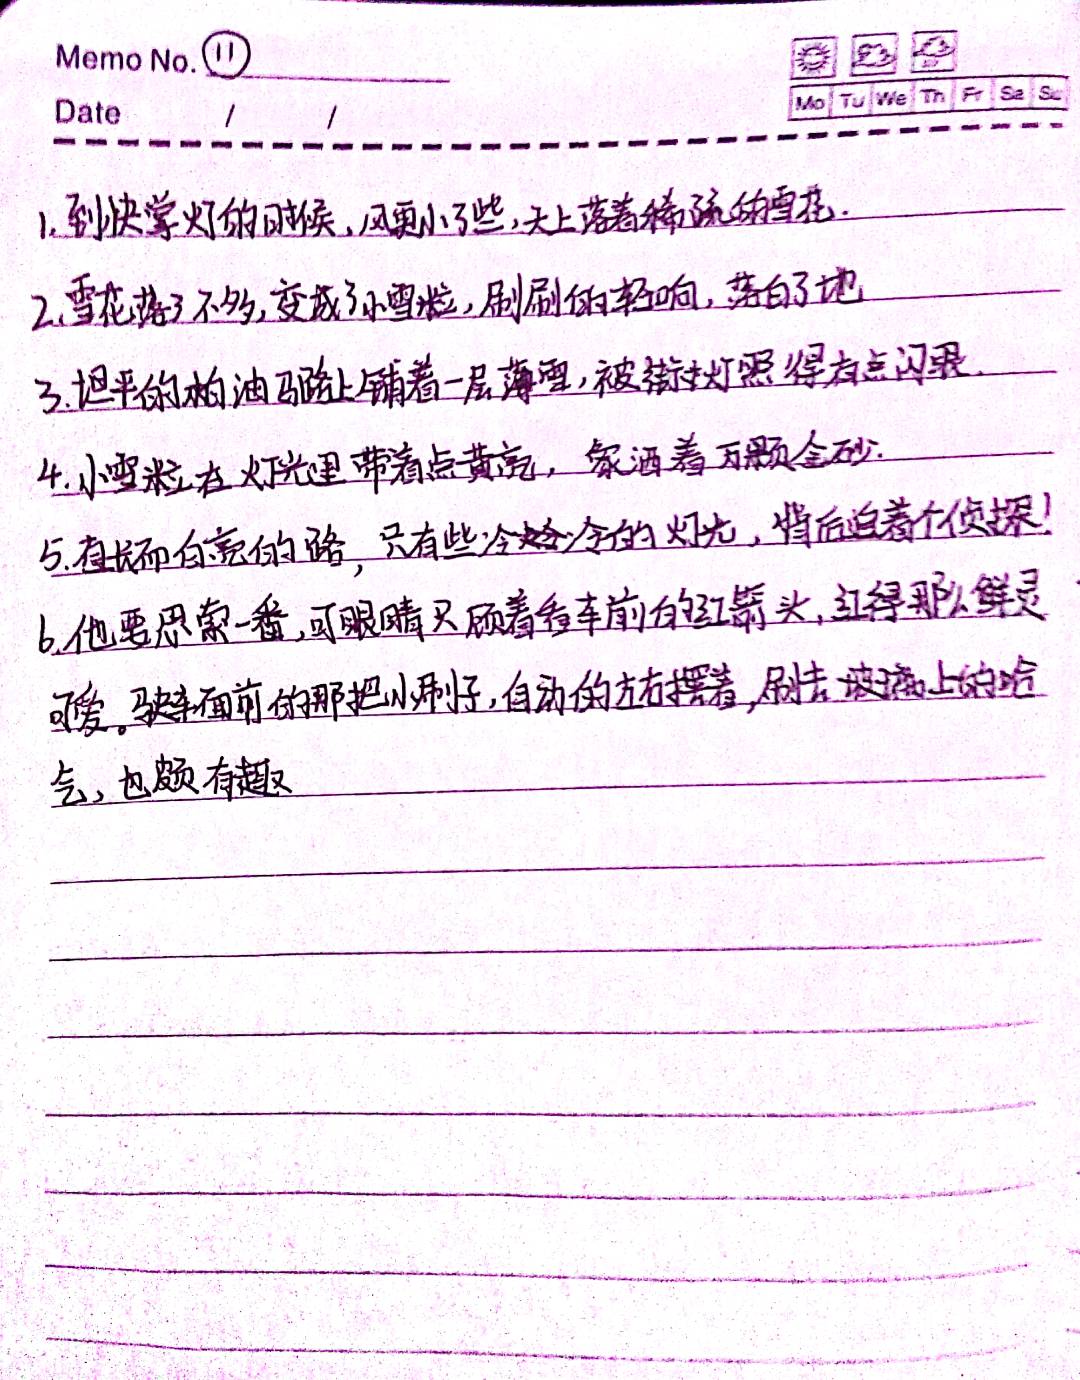 Memo No. 11
Date / /
Mo Tu We Th Fr Sa Su
1. 到快掌灯的时候，风更小了些，天上落着稀疏的雪花.
2. 雪花落了不多，变成了小雪粒，刷刷的轻响，落白了地
3. 坦平的柏油马路上铺着一层薄雪，被街灯照得有点闪眼.
4. 小雪粒在灯光里带着点黄亮，象洒着万颗金砂.
5. 直长而白亮的路，只有些冷冷的灯光，背后追着个侦探！
6. 他要思索一番，可眼睛只顾着看车前的红箭头，红得那么鲜灵
可爱。驶车面前的那把小刷子，自动的左右摆着，刷去玻璃上的哈
气，也颇有趣